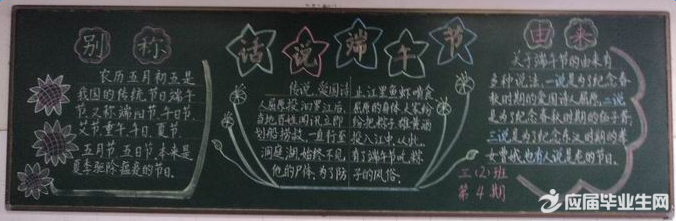 别称
农历五月初五是
我国的传统节日端午
节,又称端阳节,午日
节,重午,午日,夏节。
五月节,五日节,本来是
夏季驱除瘟疫的节日。
话说端午节
传说,爱国诗
人屈原投汨罗江后,
当地百姓闻讯立即
划船捞救,一直行至
洞庭湖,始终不见
他的尸体,为了防
止江里鱼虾啃食
屈原的身体,人家纷
纷把粽子、雄黄酒
投入江中,从此,
有了端午节吃粽
子的风俗。
由来
关于端午节的由来有
多种说法,一说是为了纪念春
秋时期的爱国诗人屈原,二说
是为了纪念春秋时期的伍子胥,
三说是为了纪念东汉时期的孝
女曹娥,也有人说是龙的节日。
(2)班
第4期
应届毕业生网